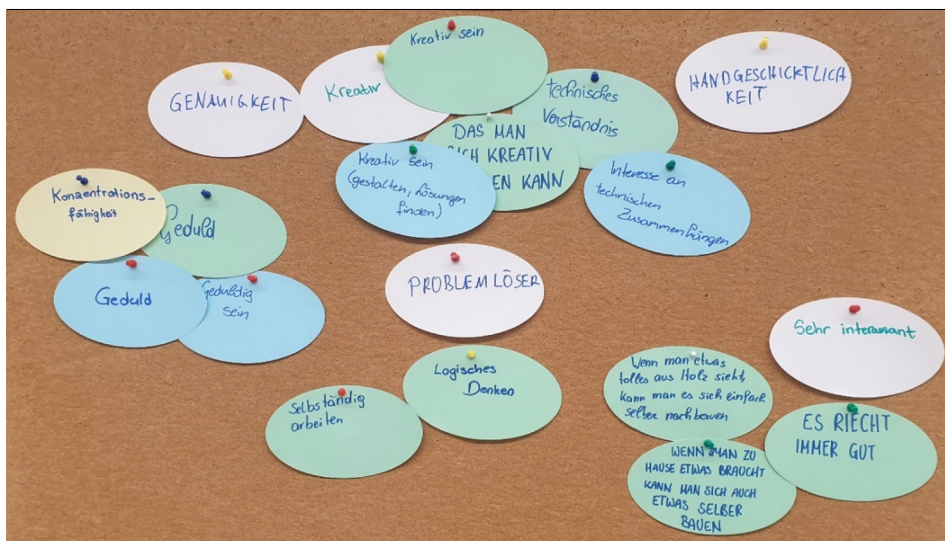 GENAUIGKEIT
Kreativ
Kreativ sein
technisches
Verständnis
HANDGESCHICKTLICH
KEIT
DAS MAN
SICH KREATIV
EN KANN
Kreativ sein
(gestalten, Lösungen
finden)
Interesse an
technischen
Zusammenhängen
Konzentrations-
fähigkeit
Geduld
Geduld
Geduldig
sein
PROBLEMLÖSER
Logisches
Denken
Selbständig
arbeiten
Sehr interessant
Wenn man etwas
tolles aus Holz sieht,
kann man es sich einfach
selber nachbauen
ES RIECHT
IMMER GUT
WENN MAN ZU
HAUSE ETWAS BRAUCHT
KANN MAN SICH AUCH
ETWAS SELBER
BAUEN